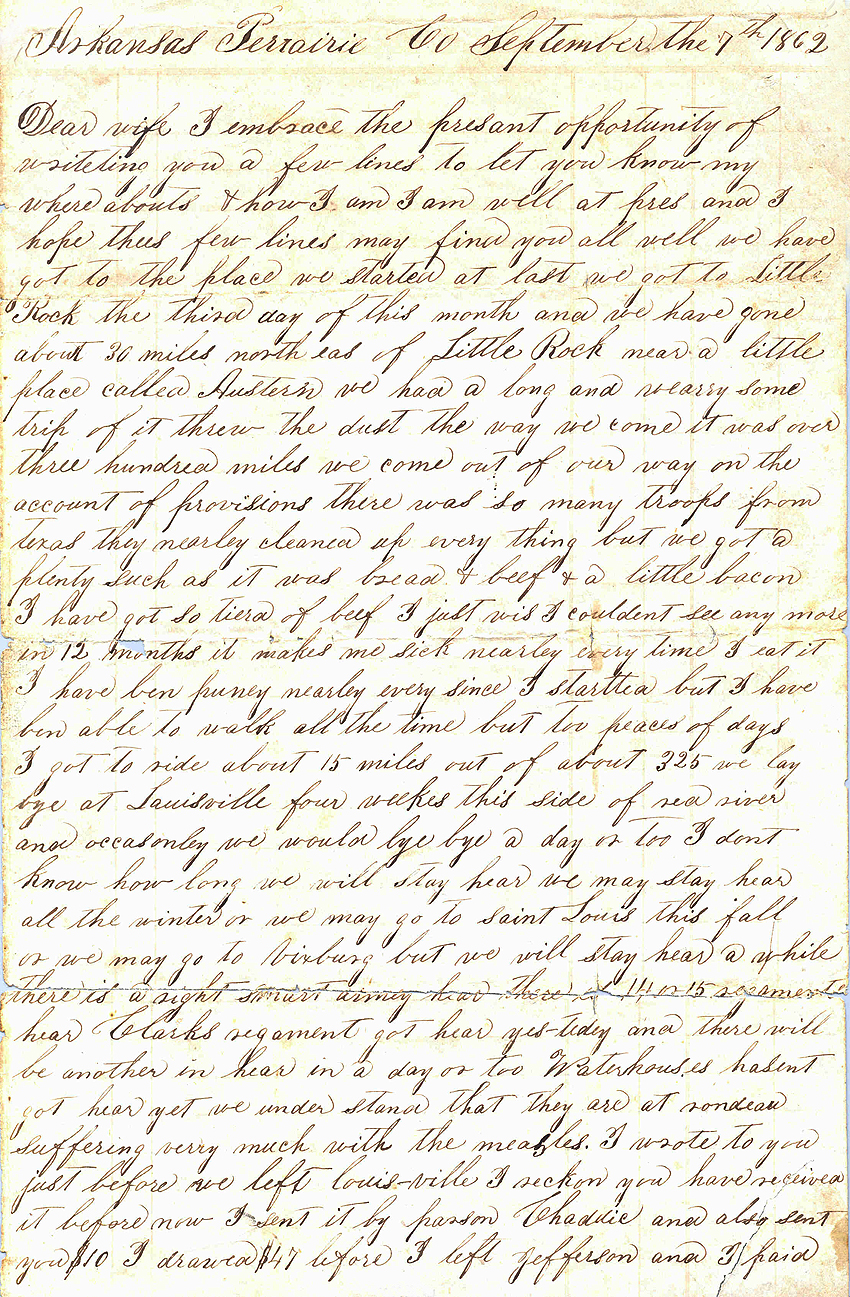 Arkansas Perrairie Co September the 7th 1862
Dear wife I embrace the presant opportunity of
writeting you a few lines to let you know my
where abouts & how I am I am well at pres and I
hope thees few lines may find you all well we have
got to the place we started at last we got to Little
Rock the third day of this month and we have gone
about 30 miles north eas of Little Rock near a little
place called Austern we had a long and wearry some
trip of it threw the dust the way we come it was over
three hundred miles we come out of our way on the
account of provisions there was so many troops from
texas they nearley cleaned up every thing but we got a
plenty such as it was bread & beef & a little bacon
I have got so tierd of beef I just wis I couldent see any more
in 12 months it makes me sick nearley every time I eat it
I have ben puney nearley every since I startted but I have
ben able to walk all the time but too peaces of days
I got to ride about 15 miles out of about 325 we lay
bye at Lauisville four weekes this side of red river
and occasonley we would lye bye a day or too I dont
know how long we will stay hear we may stay hear
all the winter or we may go to saint Louis this fall
or we may go to Vixburg but we will stay hear a while
there is a right smart armey hear there is 14 or 15 regaments
hear Clarks regament got hear yes-tidey and there will
be another in hear in a day or too Waterhouses hasent
got hear yet we under stand that they are at rondeau
suffering verry much with the measles. I wrote to you
just before we left louis-ville I reckon you have received
it before now I sent it by parson Chaddic and also sent
you $10 I drawed $47 before I left Jefferson and I paid